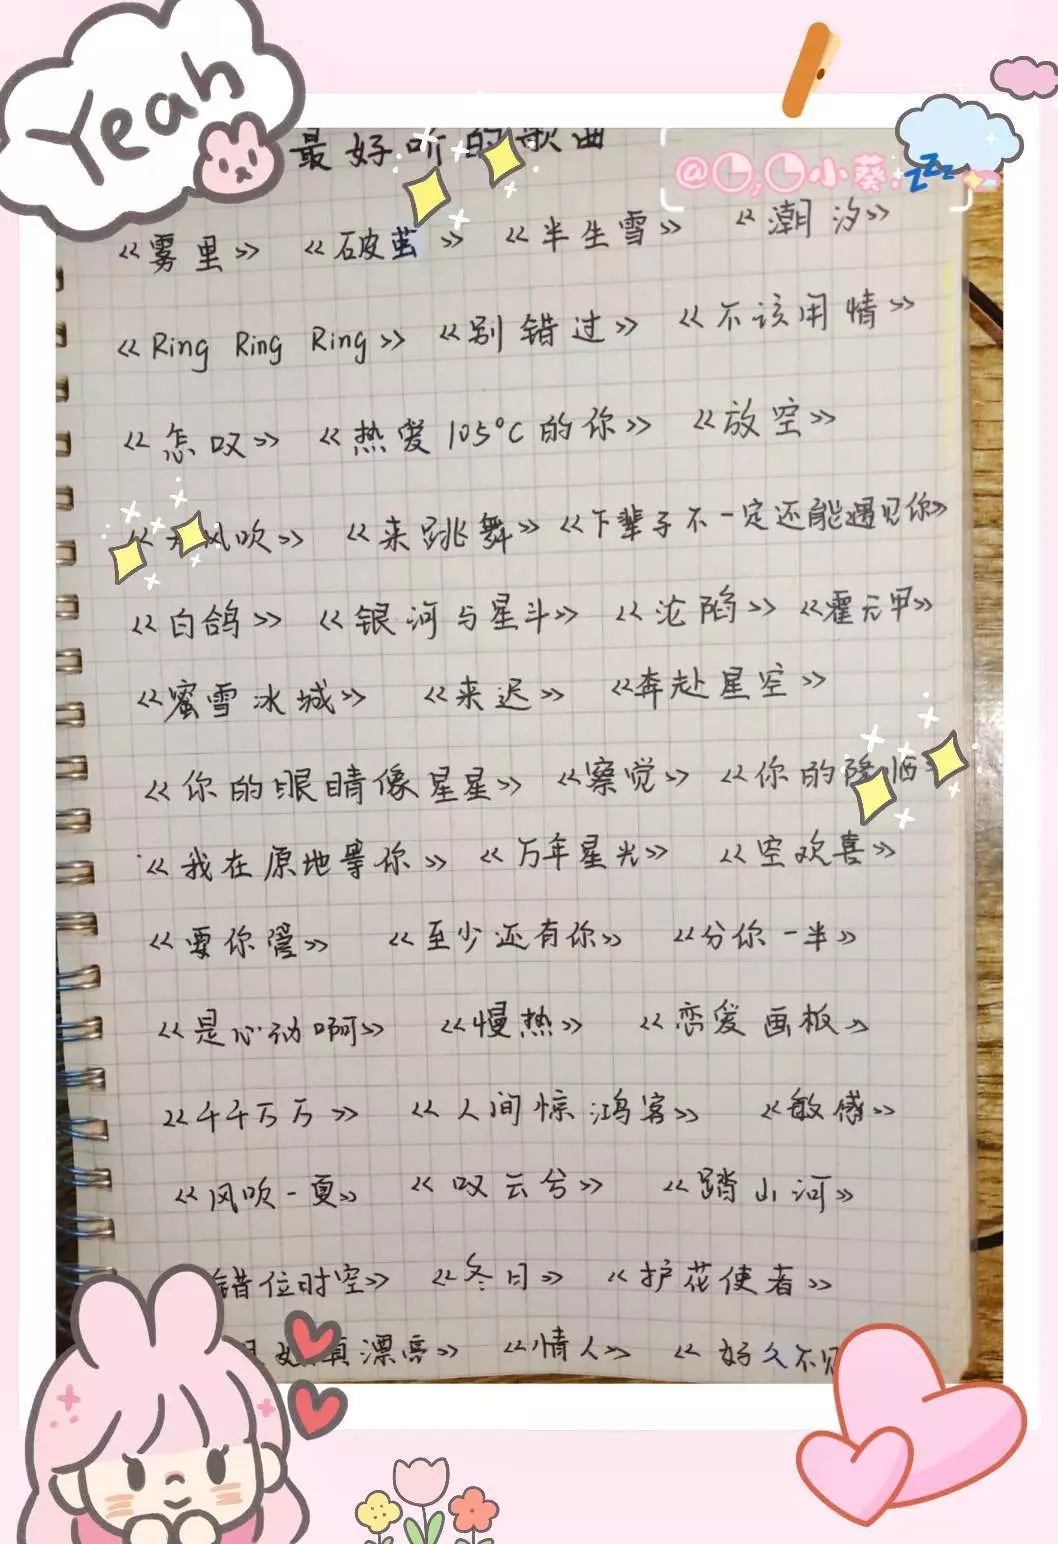 Yeah
最好听的歌曲
@小葵.zzz
《雾里》 《破茧》 《半生雪》 《潮汐》
《Ring Ring Ring》 《别错过》 《不该用情》
《怎叹》 《热爱105°C的你》 《放空》
风吹》 《来跳舞》 《下辈子不一定还能遇见你》
《白鸽》 《银河与星斗》 《沦陷》 《霍元甲》
《蜜雪冰城》 《来迟》 《奔赴星空》
《你的眼睛像星星》 《察觉》 《你的
《我在原地等你》 《万年星光》 《空欢喜》
《要你管》 《至少还有你》 《分你一半》
《是心动啊》 《慢热》 《恋爱画板》
《千千万万》 《人间惊鸿客》 《敏感》
《风吹一夏》 《叹云兮》 《踏山河》
错位时空》 《冬日》 《护花使者》
真漂亮》 《情人》 《好久不见